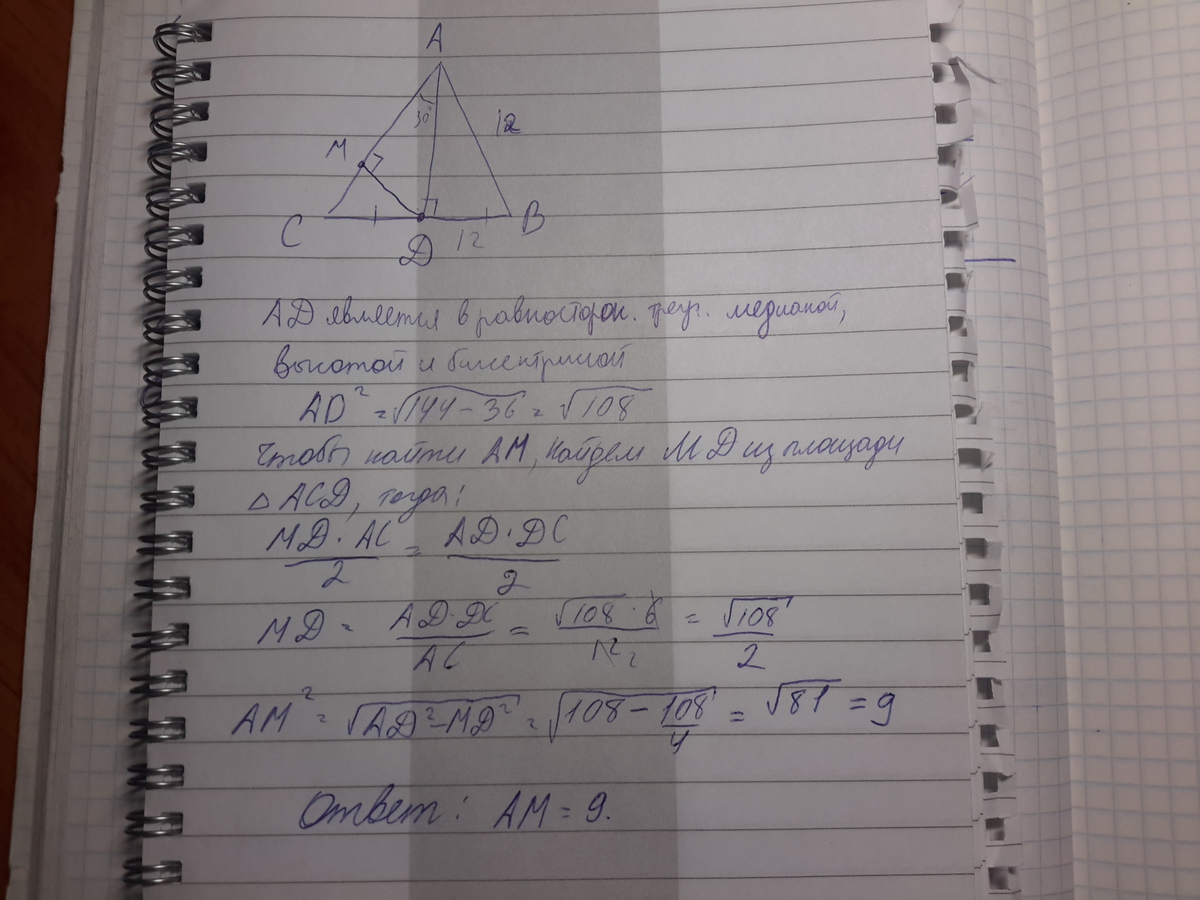 A
30°
12
M
C
D
12
B
AD является в равносторон. треуг. медианой,
высотой и биссектрисой
AD² = √144 - 36 = √108
Чтобы найти AM, найдем MD из площади
△ ACD, тогда:
MD · AC / 2 = AD · DC / 2
MD = AD · DC / AC = √108 · 6 / 12 2 = √108 / 2
AM² = √AD² - MD² = √108 - 108/4 = √81 = 9
Ответ: AM = 9.